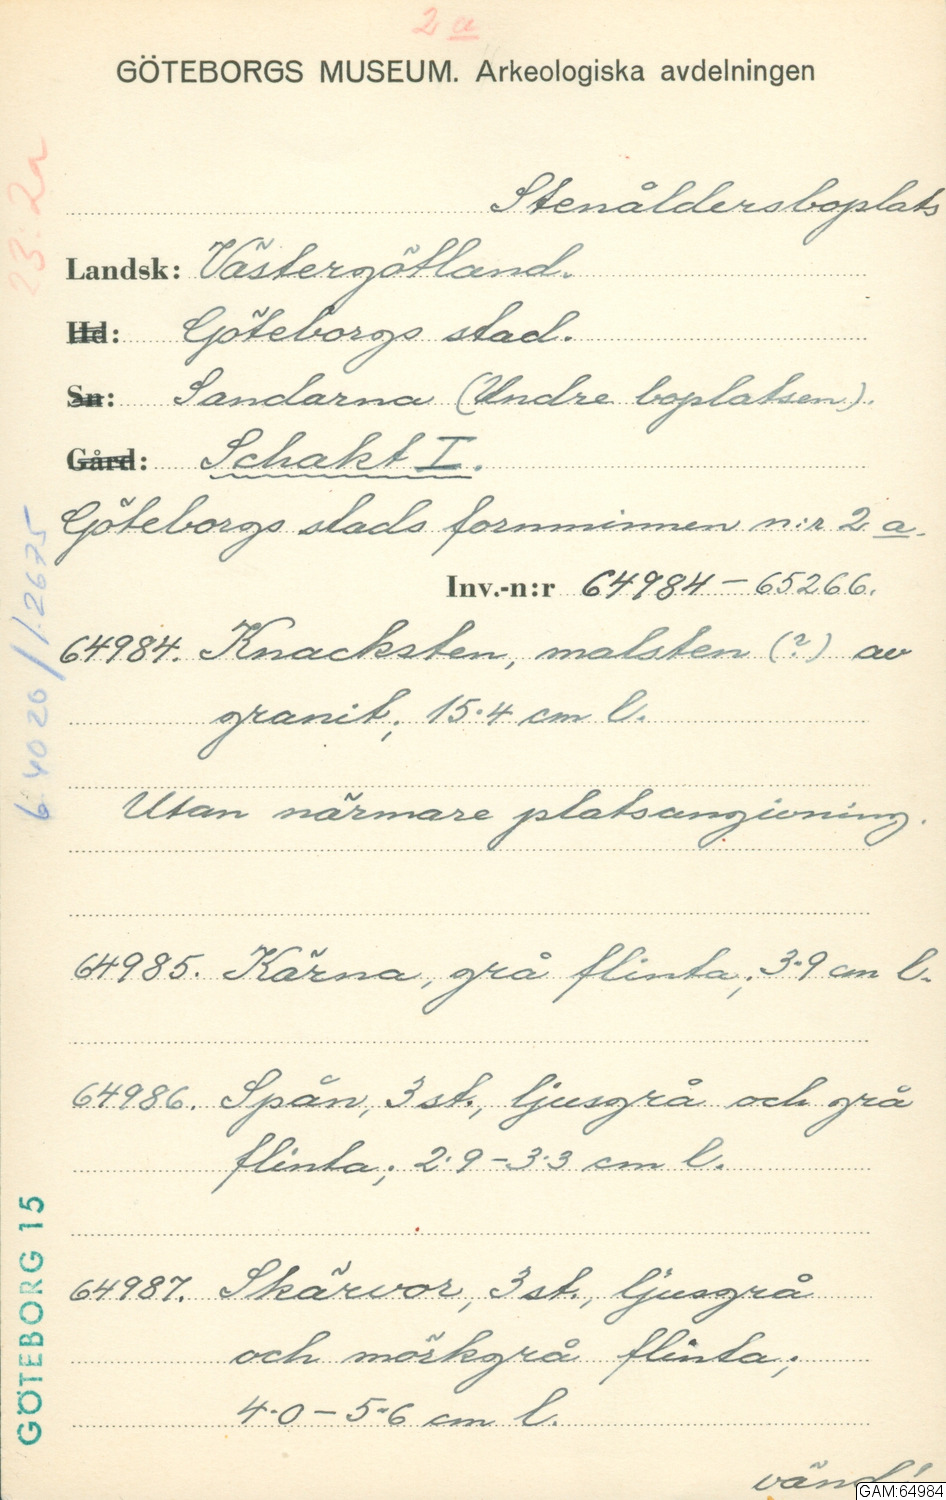 2 a
GÖTEBORGS MUSEUM. Arkeologiska avdelningen
23:2a
Stenåldersboplats
Landsk: Västergötland.
Hd: Göteborgs stad.
Sn: Sandarna (Undre boplatsen).
Gård: Schakt I.
Göteborgs stads fornminnen n:r 2 a.
Inv.-n:r 64984–65266.
64984. Knacksten, malsten (?) av
granit; 15.4 cm l.
Utan närmare platsangivning.
64985. Kärna, grå flinta; 3.9 cm l.
64986. Spån, 3 st., ljusgrå och grå
flinta; 2.9–3.3 cm l.
64987. Skärvor, 3 st., ljusgrå
och mörkgrå flinta;
4.0–5.6 cm l.
vänd!
GÖTEBORG 15
GAM:64984